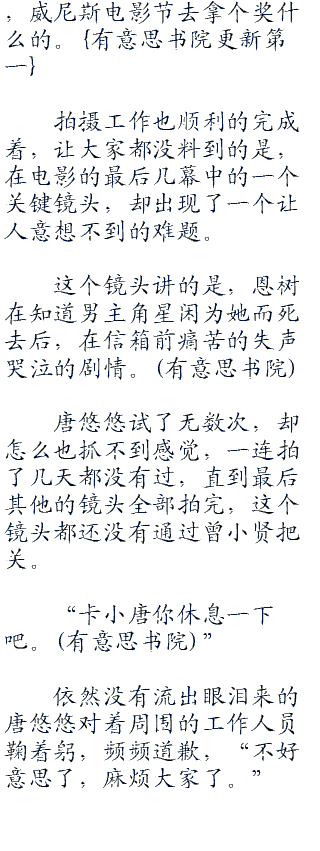 ，威尼斯电影节去拿个奖什
么的。{有意思书院更新第
一}
拍摄工作也顺利的完成
着，让大家都没料到的是，
在电影的最后几幕中的一个
关键镜头，却出现了一个让
人意想不到的难题。
这个镜头讲的是，恩树
在知道男主角星闲为她而死
去后，在信箱前痛苦的失声
哭泣的剧情。(有意思书院)
唐悠悠试了无数次，却
怎么也抓不到感觉，一连拍
了几天都没有过，直到最后
其他的镜头全部拍完，这个
镜头都还没有通过曾小贤把
关。
“卡小唐你休息一下
吧。(有意思书院)”
依然没有流出眼泪来的
唐悠悠对着周围的工作人员
鞠着躬，频频道歉，“不好
意思了，麻烦大家了。”